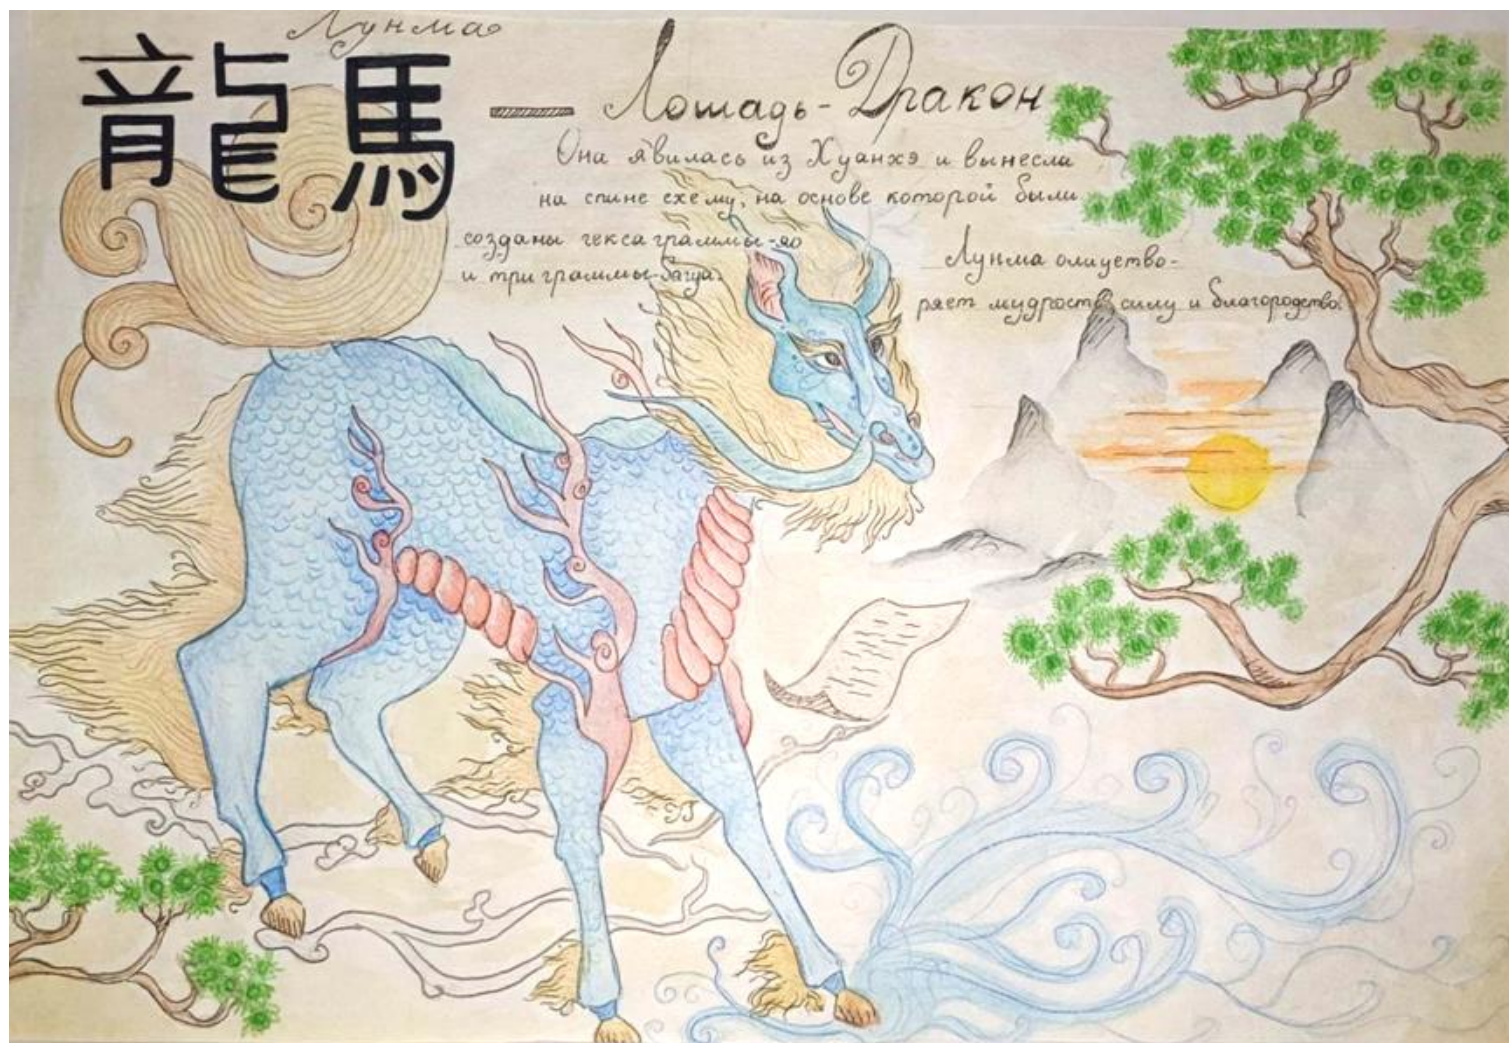 Лунма
龍馬 — Лошадь-Дракон
Она явилась из Хуанхэ и вынесла
на спине схему, на основе которой были
созданы гексаграммы-яо
и триграммы-багуа.
Лунма олицетво-
ряет мудрость, силу и благородство.